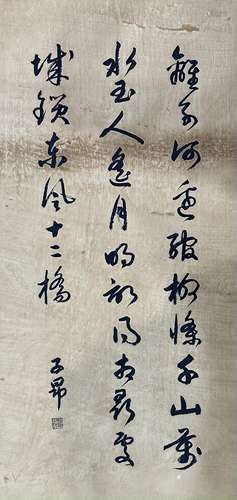 離別河邊綰柳條千山萬
水玉人遙月明記得相尋處
城鎖東風十二橋
子昂